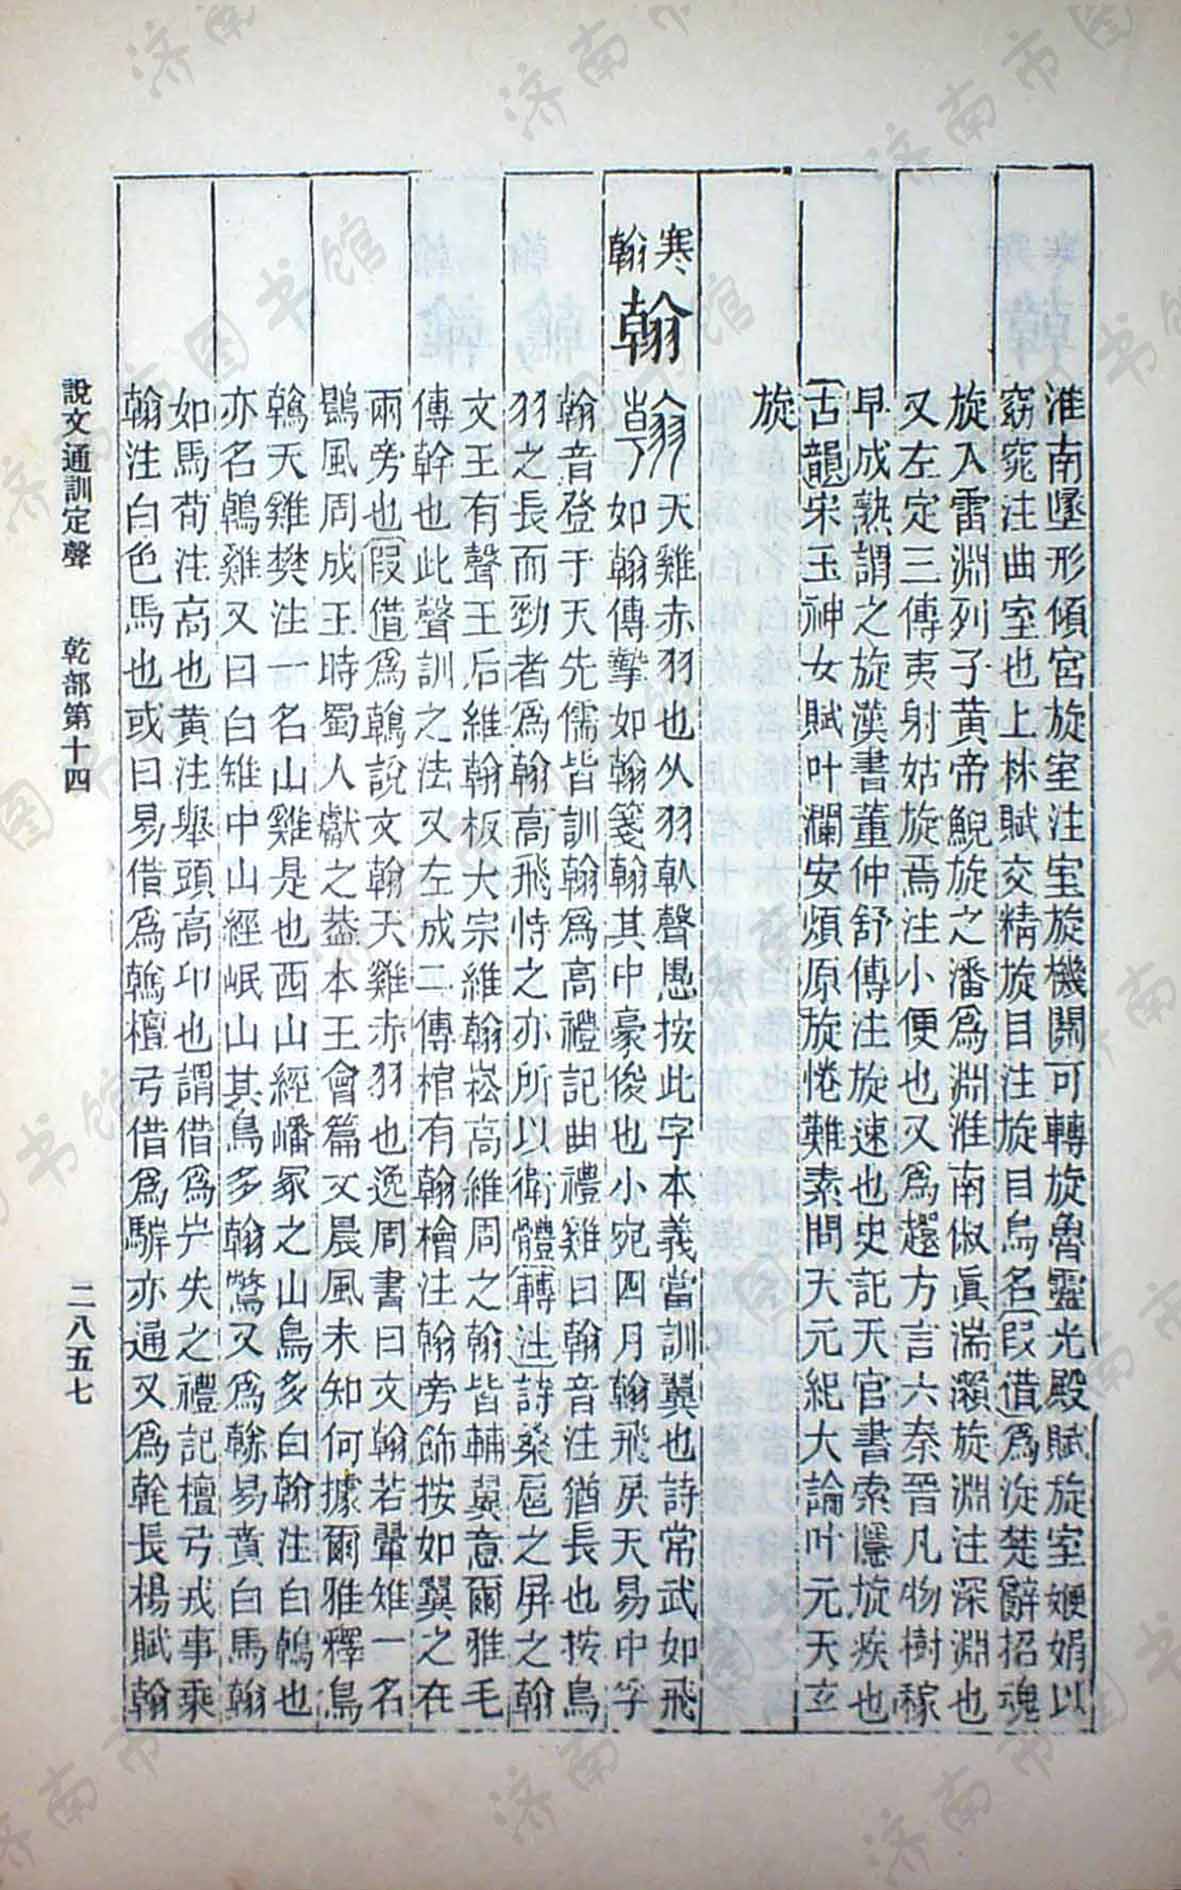 淮南墬形傾宮旋室注室旋機關可轉旋魯靈光殿賦旋室㛹娟以
窈窕注曲室也上林賦交精旋目注旋目鳥名叚借爲淀楚辭招魂
旋入雷淵列子黄帝鯢旋之潘爲淵淮南俶眞湍瀨旋淵注深淵也
又左定三傳夷射姑旋焉注小便也又爲趧方言六秦晉凡物樹稼
早成熟謂之旋漢書董仲舒傳注旋速也史記天官書索隱旋疾也
古韻宋玉神女賦叶瀾安煩原旋惓難素問天元紀大論叶元天立
旋
寒
翰
翰
天雞赤羽也从羽倝聲愚按此字本義當訓翼也詩常武如飛
如翰傳摯如翰箋翰其中豪俊也小宛四月翰飛戾天易中孚
翰音登于天先儒皆訓翰爲高禮記曲禮雞曰翰音注猶長也按鳥
羽之長而勁者爲翰高飛恃之亦所以衛體轉注詩桑扈之屏之翰
文王有聲王后維翰板大宗維翰崧高維周之翰皆輔翼意爾雅毛
傳幹也此聲訓之法又左成二傳棺有翰檜注翰旁飾按如翼之在
兩旁也叚借爲鶾說文翰天雞赤羽也逸周書曰文翰若翬雉一名
鷐風周成王時蜀人獻之葢本王會篇文晨風未知何據爾雅釋鳥
鶾天雞樊注一名山雞是也西山經嶓冢之山鳥多白翰注白鶾也
亦名鶾雞又曰白雉中山經岷山其鳥多翰鷩又爲鶾易賁白馬翰
如馬荀注高也黄注舉頭高卬也謂借爲屵失之禮記檀弓戎事乘
翰注白色馬也或曰易借爲鶾檀弓借爲騂亦通又爲毦長楊賦翰
說文通訓定聲
乾部第十四
二八五七